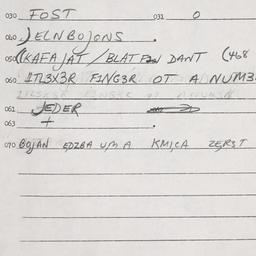 030 FOST 031 O
040 JELNBOJONS
050 (KAFAJAT / BLAT DANT (468
060 1TL3X3R F1NG3R OT A NUM3
061 JEDER
063 +
070 BOJAN EDZBA UM A KMICA ZERST